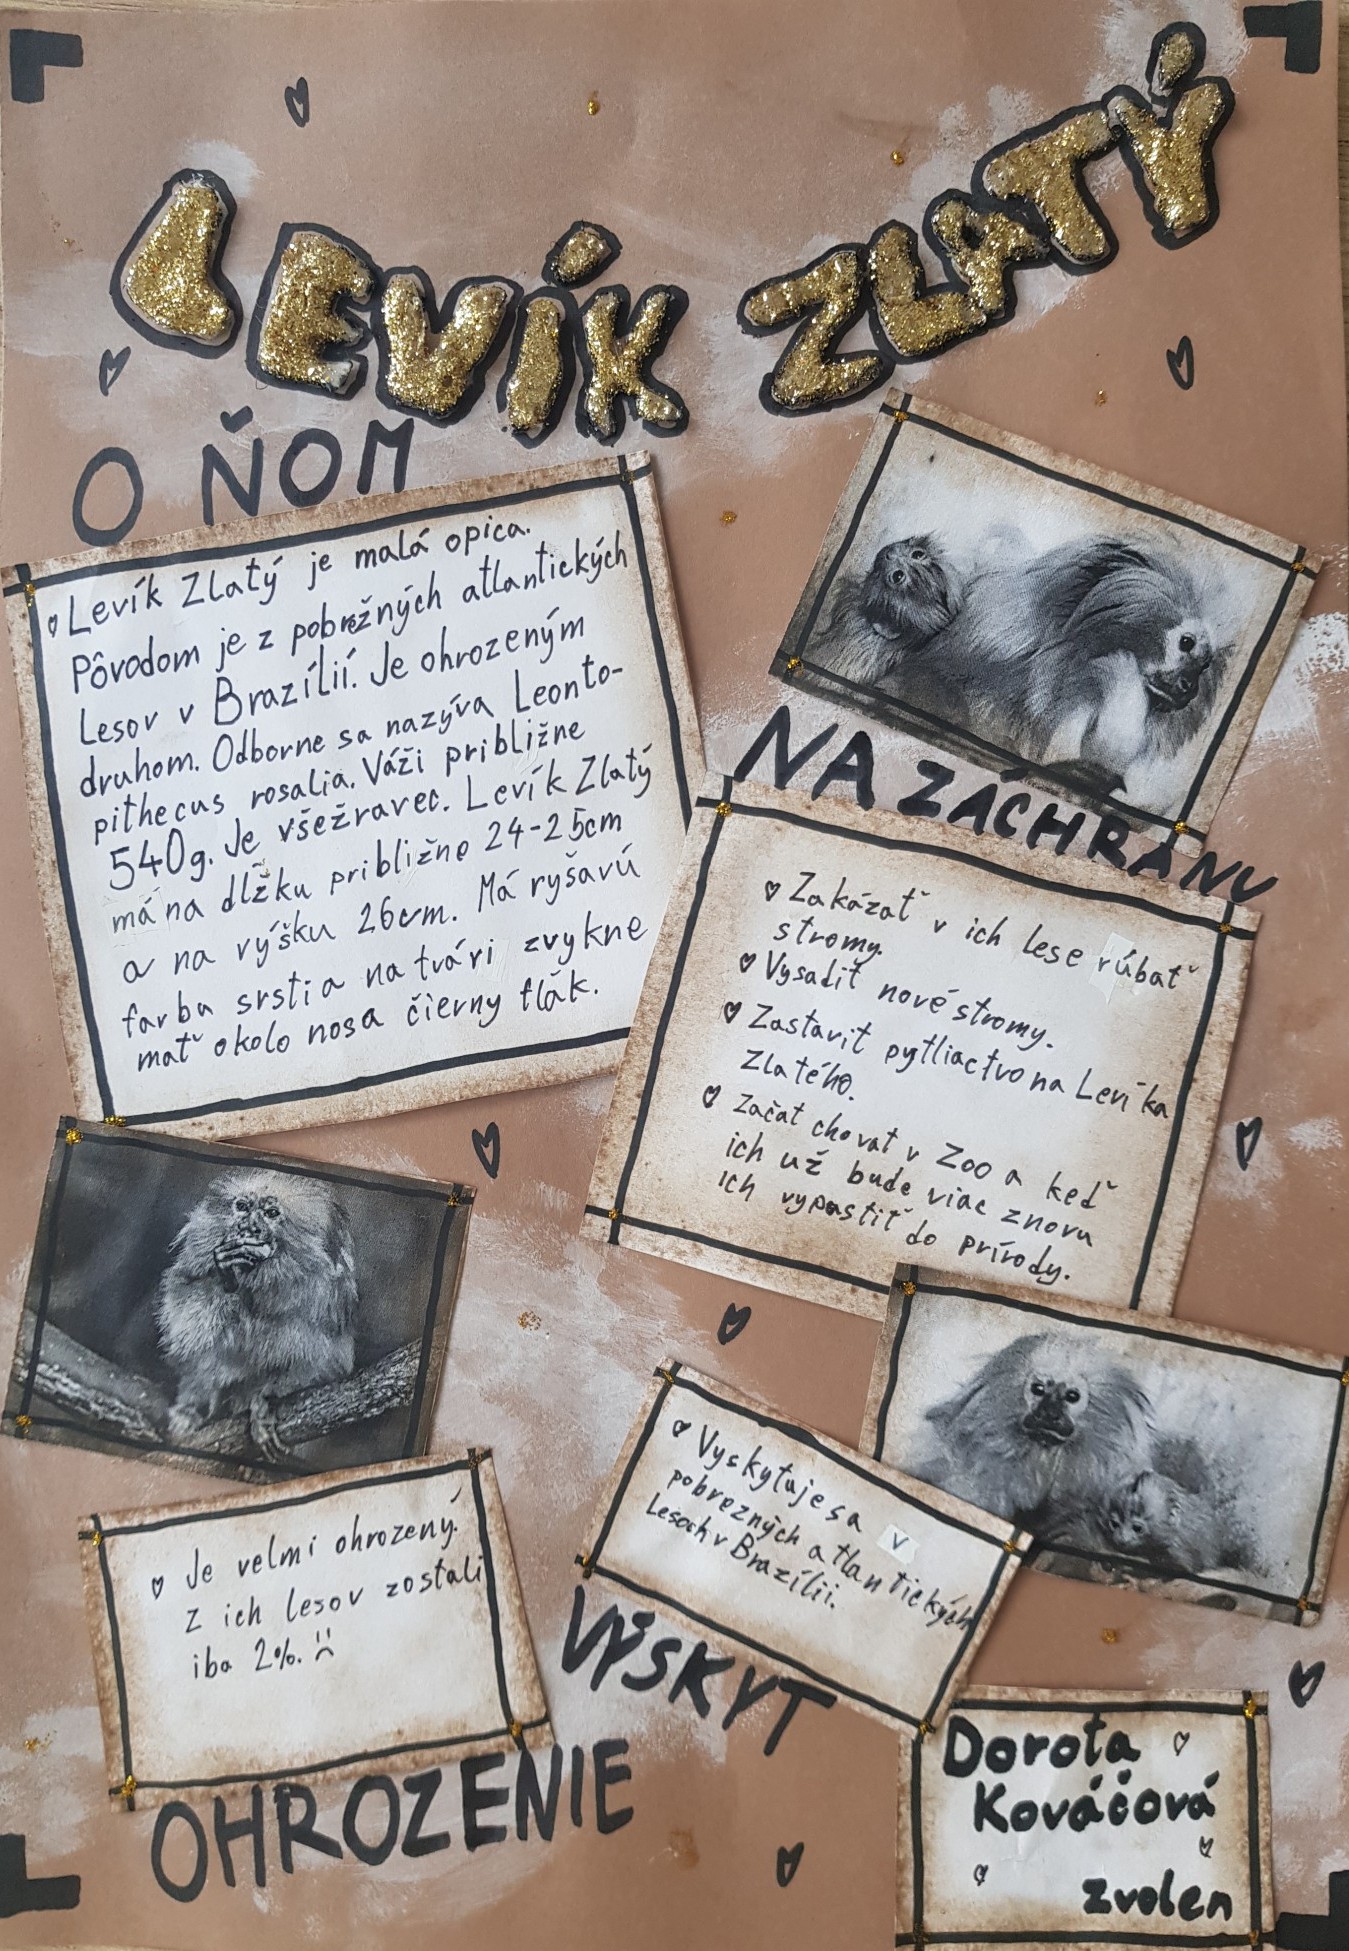 LEVÍK ZLATÝ
O ŇOM
Levík Zlatý je malá opica.
Pôvodom je z pobrežných atlantických
Lesov v Brazílií. Je ohrozeným
druhom. Odborne sa nazýva Leonto-
pithecus rosalia. Váži približne
540g. Je všežravec. Levík Zlatý
má na dlžku približne 24-25cm
a na výšku 26cm. Má ryšavú
farba srsti a na tvári zvykne
mať okolo nosa čierny flák.
NA ZÁCHRANU
Zakázať v ich lese rúbať
stromy.
Vysadiť nové stromy.
Zastaviť pytliactvo na Levíka
Zlatého.
Začať chovať v Zoo a keď
ich už bude viac znovu
ich vypustiť do prírody.
Je velmi ohrozený.
Z ich lesov zostali
iba 2%. :(
OHROZENIE
Vyskytuje sa v
pobrezných atlantických
Lesoch v Brazílii.
VÝSKYT
Dorota
Kováčová
Zvolen